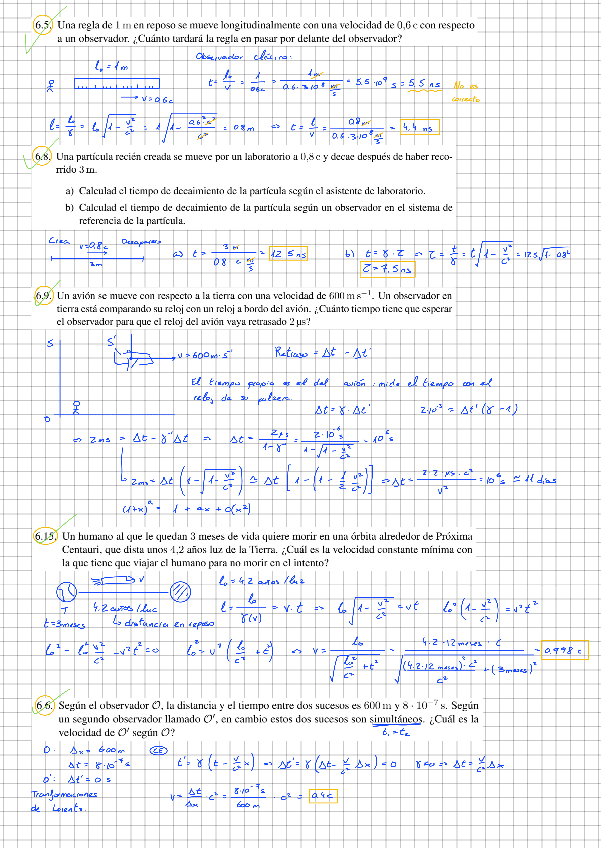 6.5. Una regla de 1 m en reposo se mueve longitudinalmente con una velocidad de 0,6 c con respecto
a un observador. ¿Cuánto tardará la regla en pasar por delante del observador?
Observador clásico:
l₀ = 1m
t = l₀/v = 1/0.6c = 1m/(0.6·3·10⁸ m/s) = 5.5·10⁻⁹ s = 5,5 ns
No es correcto
→ v = 0,6c
l = l₀/γ = l₀ √(1 - v²/c²) = 1 √(1 - 0.6²c²/c²) = 0.8 m ⇒ t = l/v = 0.8m/(0.6·3·10⁸ m/s) = 4,4 ns
6.8. Una partícula recién creada se mueve por un laboratorio a 0,8 c y decae después de haber reco-
rrido 3 m.
a) Calculad el tiempo de decaimiento de la partícula según el asistente de laboratorio.
b) Calculad el tiempo de decaimiento de la partícula según un observador en el sistema de
referencia de la partícula.
Crea v=0,8c Desaparece
3m
a) t = 3 m/(0.8 c m/s) = 12.5 ns
b) t = γ·τ ⇒ τ = t/γ = t √(1 - v²/c²) = 12.5 √(1 - 0.8²)
τ = 7.5 ns
6.9. Un avión se mueve con respecto a la tierra con una velocidad de 600 m s⁻¹. Un observador en
tierra está comparando su reloj con un reloj a bordo del avión. ¿Cuánto tiempo tiene que esperar
el observador para que el reloj del avión vaya retrasado 2 µs?
S S' → v = 600 m·s⁻¹
Retraso = Δt - Δt'
El tiempo propio es el del avión: mide el tiempo con el
reloj de su pulsera.
O
Δt = γ·Δt' 2·10⁻⁶ = Δt' (γ - 1)
⇒ 2ms = Δt - γ⁻¹Δt ⇒ Δt = 2μs/(1-γ⁻¹) = 2·10⁻⁶ s/(1 - √(1 - v²/c²)) = 10⁶ s
2ms = Δt (1 - √(1 - v²/c²)) ≃ Δt [1 - (1 - 1/2 v²/c²)] ⇒ Δt = 2·2·μs·c²/v² = 10⁶ s ≃ 11 días
(1+x)ᵃ = 1 + ax + O(x²)
6.15. Un humano al que le quedan 3 meses de vida quiere morir en una órbita alrededor de Próxima
Centauri, que dista unos 4,2 años luz de la Tierra. ¿Cuál es la velocidad constante mínima con
la que tiene que viajar el humano para no morir en el intento?
v
l₀ = 4,2 años/luz
T 4.2 años/luz
l = l₀/γ(v) = v·t ⇒ l₀ √(1 - v²/c²) = vt l₀² (1 - v²/c²) = v²t²
t = 3 meses l₀ distancia en reposo
l₀² - l₀² v²/c² - v²t² = 0 l₀² = v² (l₀²/c² + t²) ⇒ v = l₀/√(l₀²/c² + t²) = 4.2·12 meses·c/√((4.2·12 meses)²·c²/c² + (3 meses)²) = 0,998 c
6.6. Según el observador O, la distancia y el tiempo entre dos sucesos es 600 m y 8 · 10⁻⁷ s. Según
un segundo observador llamado O', en cambio estos dos sucesos son simultáneos. ¿Cuál es la
velocidad de O' según O?
t₁ = t₂
O: Δx = 600 m
Δt = 8·10⁻⁷ s
t' = γ (t - v/c² x) ⇒ Δt' = γ (Δt - v/c² Δx) = 0 γ≠0 ⇒ Δt = v/c² Δx
O': Δt' = 0 s
Transformaciones
de Lorentz.
v = Δt/Δx · c² = 8·10⁻⁷ s/600 m · c² = 0,4c